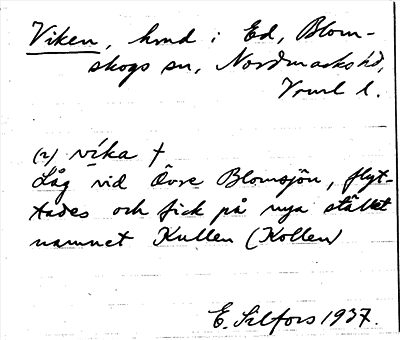 Viken, hmd i Ed, Blom-
skogs sn, Nordmarks hd,
Vrml l.
(2) víka †
Låg vid Övre Blomsjön, flyt-
tades och fick på nya stället
namnet Kullen (Kollen)
E. Silfors 1937.